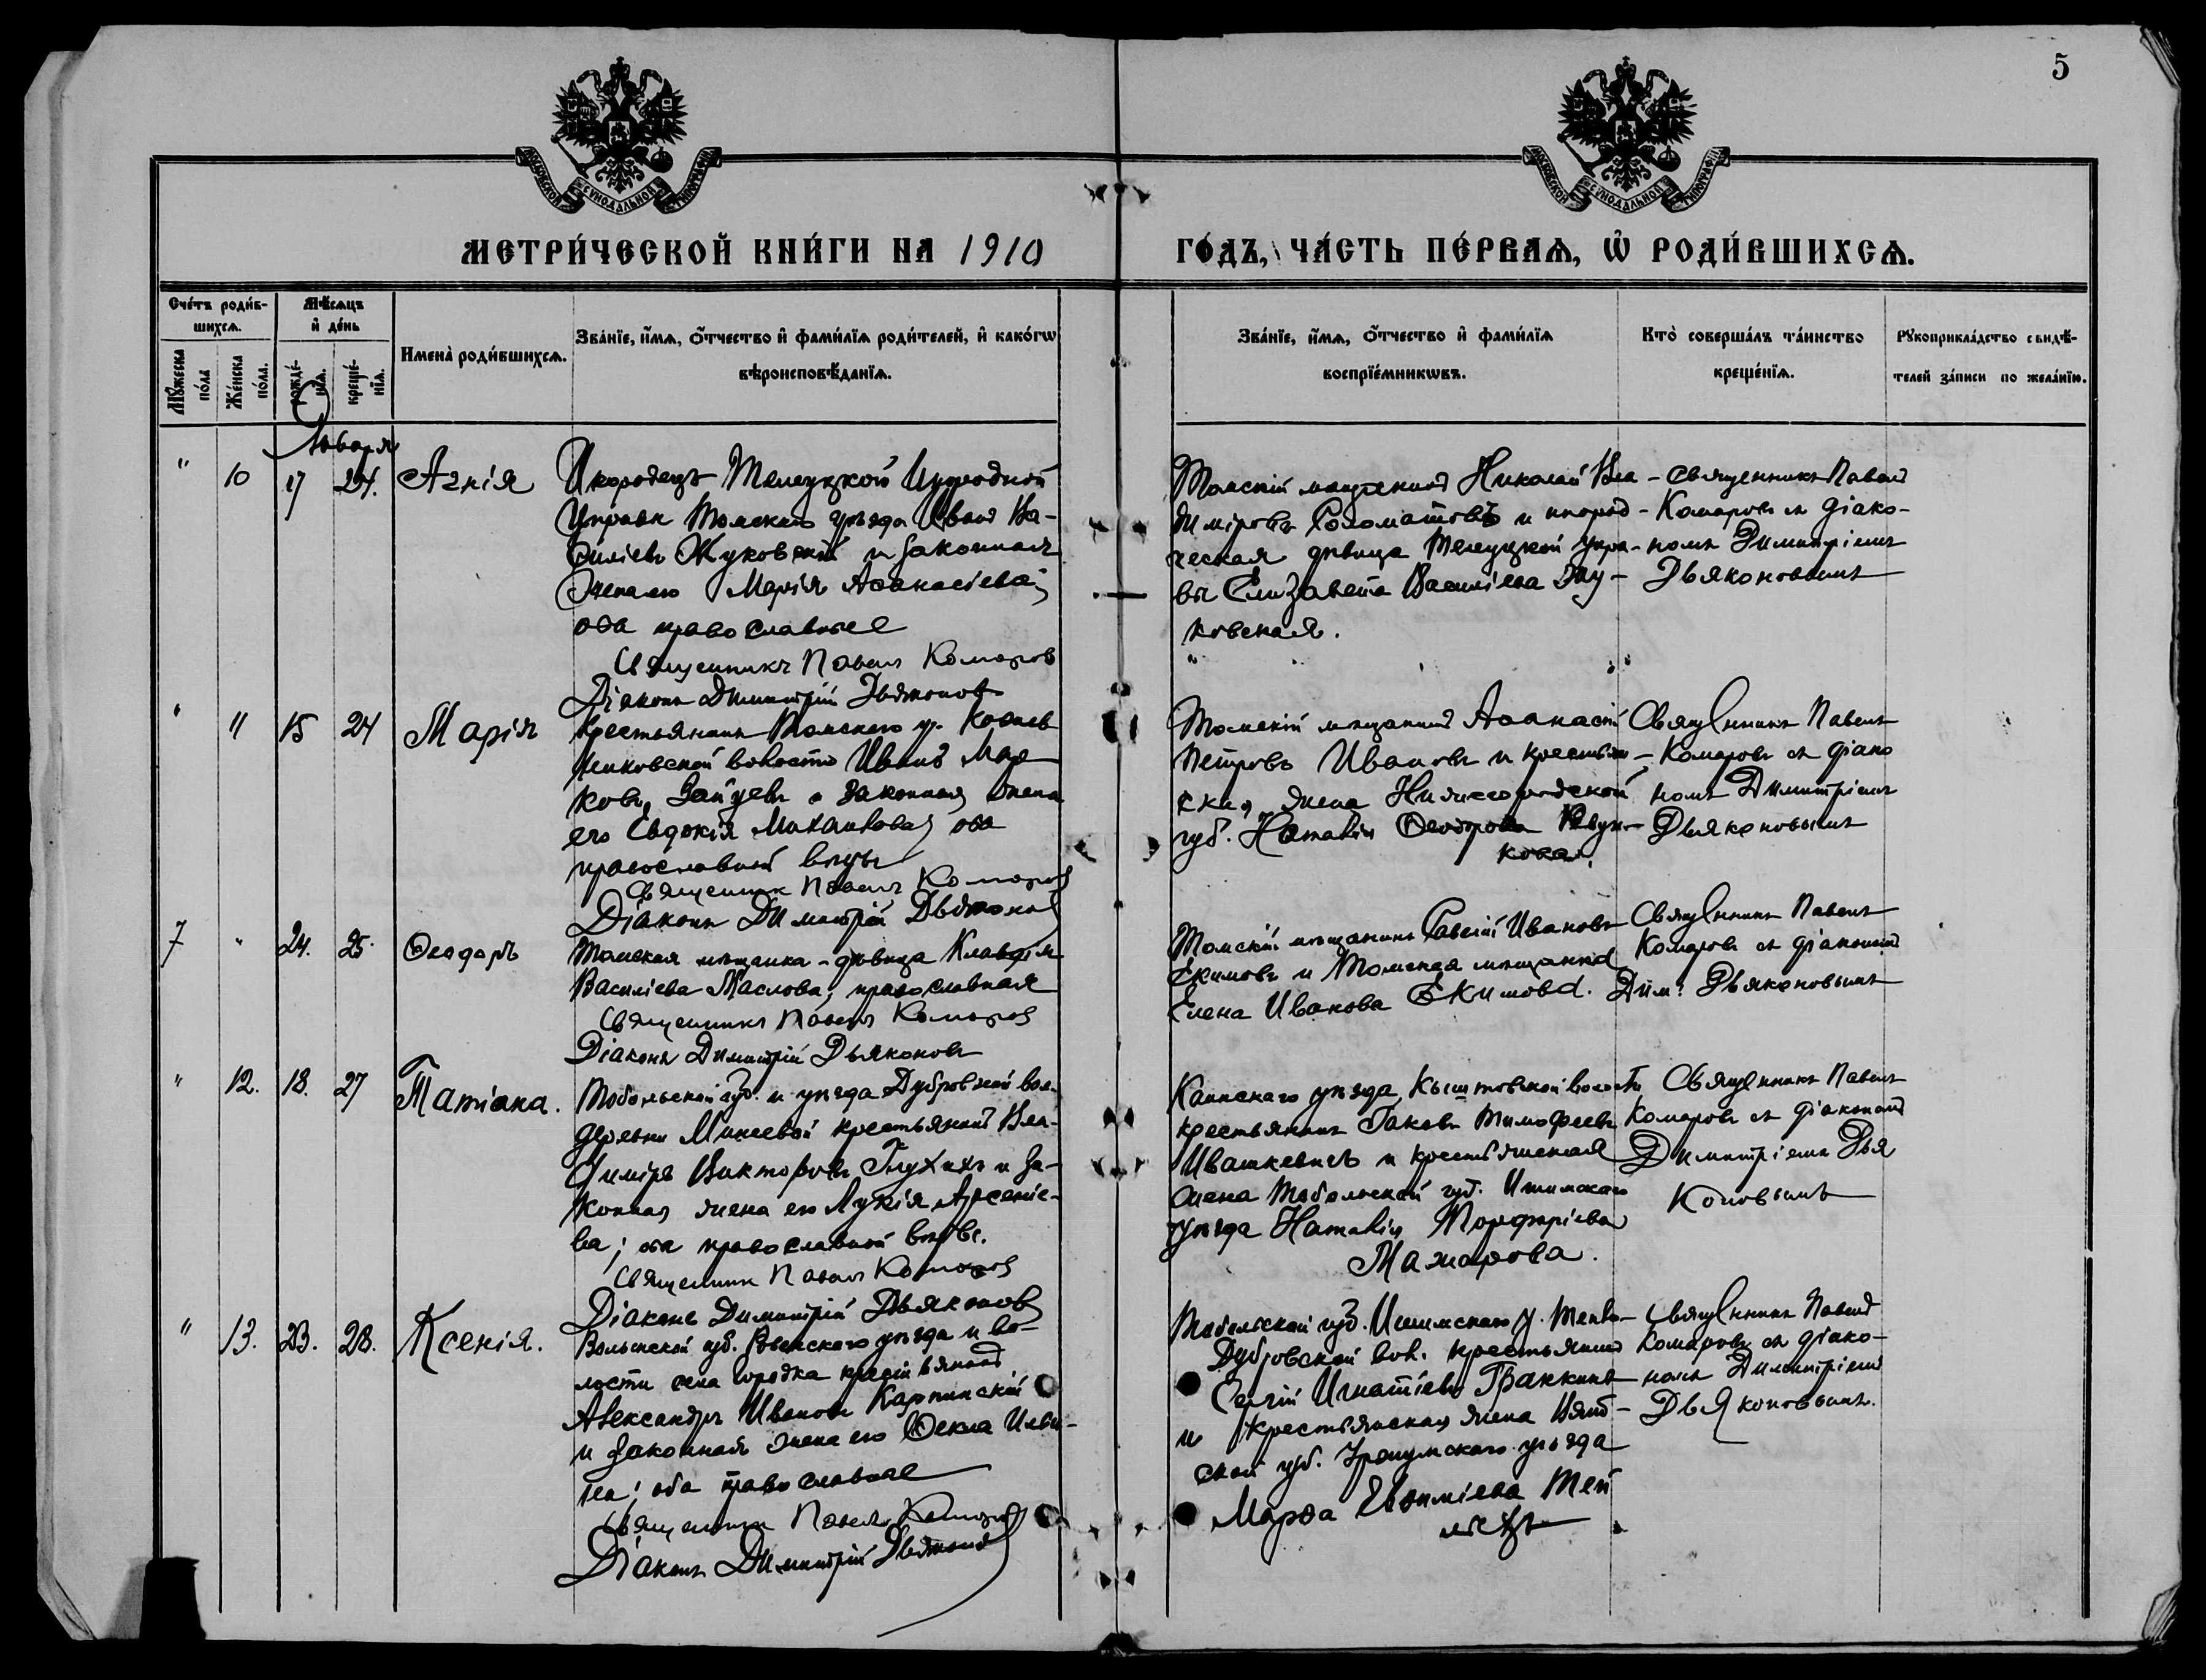 5
МОСКОВСКОЙ СѴНОДАЛЬНОЙ ТИПОГРАФІИ
МОСКОВСКОЙ СѴНОДАЛЬНОЙ ТИПОГРАФІИ
МЕТРИ́ЧЕСКОЙ КНИ́ГИ НА 1910
ГО́ДЪ, ЧА́СТЬ ПЕ́РВАѦ, Ѡ҆ РОДИ́ВШИХСѦ.
Сче́тъ роди́в-
шихсѧ.
Мѣ́сѧцъ
и҆ де́нь
Мꙋ́жеска
по́ла
Же́нска
по́ла.
рожде́-
нїѧ.
креще́-
нїѧ.
Имена̀ роди́вшихсѧ.
Зва́нїе, и҆́мѧ, ѻ҆́тчество и҆ фами́лїѧ роди́телей, и҆ како́гѡ
вѣроисповѣ́данїѧ.
Зва́нїе, и҆́мѧ, ѻ҆́тчество и҆ фами́лїѧ
воспрїе́мникѡвъ.
Кто̀ соверша́лъ та́инство
креще́нїѧ.
Рꙋкоприкла́дство свидѣ́-
телей за́писи по жела́нїю.
Января
" 10 17 24. Агнія
Инородецъ Телеуцкой Инородной
Управы Томскаго уѣзда Иванъ Ва-
силіевъ Жуковскій и законная
жена его Марія Аѳанасіева;
оба православные
Священникъ Павелъ Комаров
Діаконъ Димитрій Дьяконов
Томскій мѣщанинъ Николай Вла-
диміровъ Соломатовъ и инород-
ческая дѣвица Телеуцкой Упра-
вы Елизавета Василіева Жу-
ковская.
Священникъ Павелъ
Комаровъ съ діако-
номъ Димитріемъ
Дьяконовымъ
" 11 15 24 Марія
Крестьянинъ Томскаго у.
волости Иванъ Мар-
ковъ Зайцевъ и законная жена
его Евдокія Михаилова; оба
православной вѣры
Священник Павелъ Комаров
Діаконъ Димитрій Дьяконов
Томскій мѣщанинъ Аѳанасій
Петровъ Ивановъ и крестьян-
ская жена Нижегородской
губ. Наталія Ѳеодорова
кова.
Священникъ Павелъ
Комаровъ съ діако
номъ Димитріемъ
Дьяконовымъ
7 " 24. 25. Ѳеодоръ
Томская мѣщанка-дѣвица Клавдія
Василіева Маслова; православная
Священникъ Павелъ Комаров
Діаконъ Димитрій Дьяконовъ
Томскій мѣщанинъ Иванов
Екимовъ и Томская мѣщанка
Елена Иванова Екимова.
Священникъ Павелъ
Комаровъ съ діакономъ
Дим. Дьяконовымъ
" 12. 18. 27 Татіана.
Тобольской губ. и уѣзда Дубровной вол.
деревни Минеевой крестьянинъ Вла-
диміръ Викторовъ Глухихъ и за-
конная жена его Лукія Арсеніе-
ва; оба православной вѣры.
Священник Павелъ Комаров
Діаконъ Димитрій Дьяконов
Каинскаго уѣзда Кыштовской волости
крестьянинъ Іаковъ Тимофеевъ
Ивашкевичъ и крестьянская
жена Тобольской губ. Ишимскаго
уѣзда Наталія Порфиріева
Макарова.
Священникъ Павелъ
Комаровъ съ діакономъ
Димитріемъ Дья
коновымъ
" 13. 23. 28. Ксенія.
Волынской губ. Ровенскаго уѣзда и во-
лости села Городка крестьянинъ
Александръ Ивановъ Карпинскій
и законная жена его Ѳекла Ильи-
на; оба православные
Священник Павелъ Комаров
Діаконъ Димитрій Дьяконов
Тобольской губ. Ишимскаго у.
Дубровской вол. крестьянинъ
Сергій Игнатіевъ
и крестьянская жена Вят-
ской губ. Уржумскаго уѣзда
Марѳа Евѳиміева
Священникъ Павелъ
Комаровъ съ діако-
номъ Димитріемъ
Дьяконовымъ.